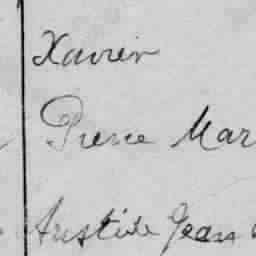 Xavier
Pierre Mar
Aristide Jean